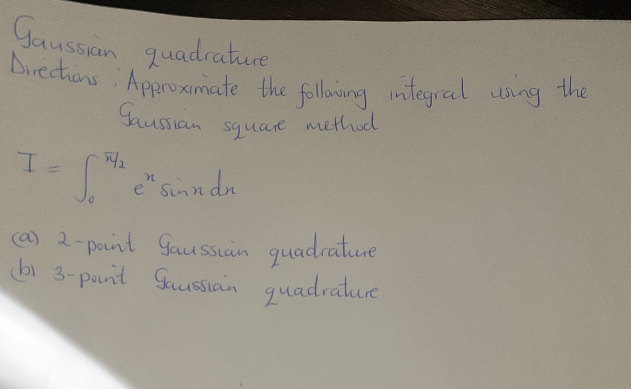 Gaussian quadrature
Directions : Approximate the following integral using the
Gaussian square method
I = ∫₀^(π/2) eˣ sinx dx
(a) 2-point Gaussian quadrature
(b) 3-point Gaussian quadrature